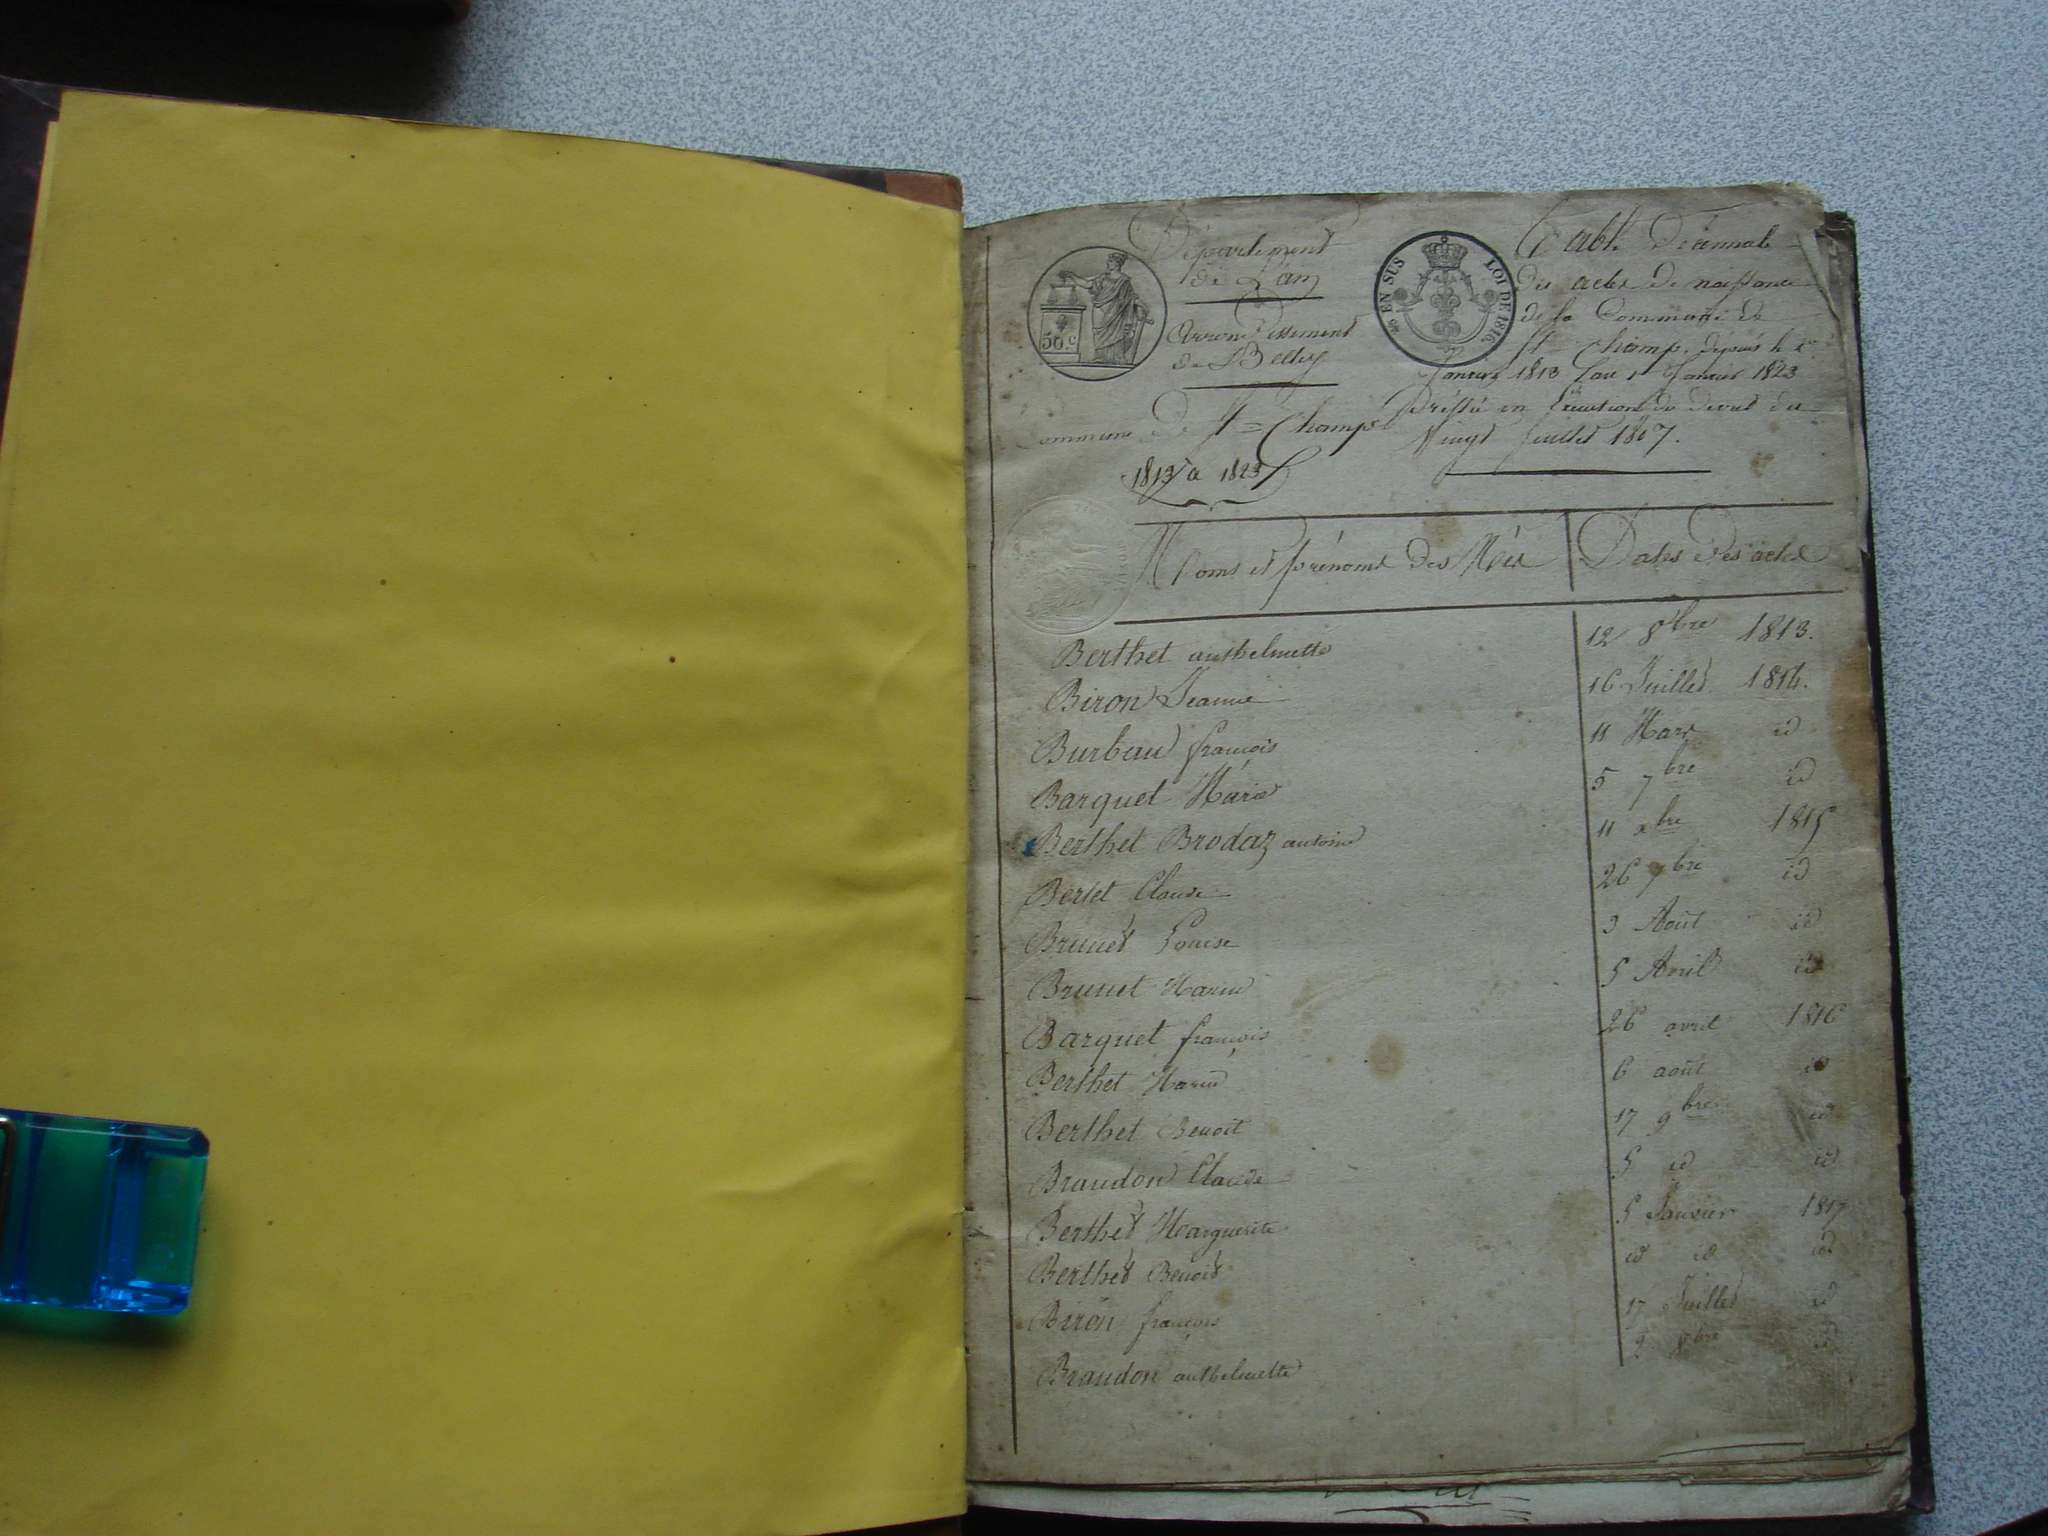 Département
de L'ain
Arrondissement
de Belley
commune de St Champ
1813 à 1823
50 c
EN SUS LOI DE 1816
Table Décennale
des actes de naissance
de la Commune de
St Champ, depuis le 1er
Janvier 1813 au 1er Janvier 1823
Dressée en Exécution du décret du
Vingt Juillet 1807.
Noms et prénoms des Nés Dates des actes
Berthet anthelmette 12 8bre 1813.
Biron Jeanne 16 Juillet 1814.
Burbau françois 11 Mars id
Barquet Marie 5 7bre id
Berthet Brodaz antoine 11 xbre 1815
Bertet Claude 26 7bre id
Brunet Louise 3 Août id
Brunet Marie 5 Avril id
Barquet françois 26 avril 1816
Berthet Marie 6 août id
Berthet Benoit 17 9bre id
Braudon Claude 5 id id
Berthet Marguerite 5 Janvier 1817
Berthet Benoit id id id
Biron françois 17 Juillet id
Braudon anthelmette 9 8bre id